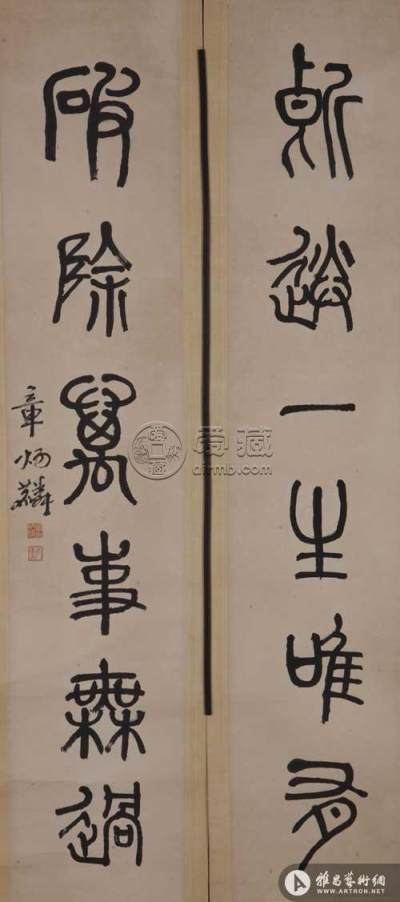 斷送一生唯有
破除萬事無過
章炳麟
爱藏
airmb.com
雅昌藝術網
WWW.ARTRON.NET